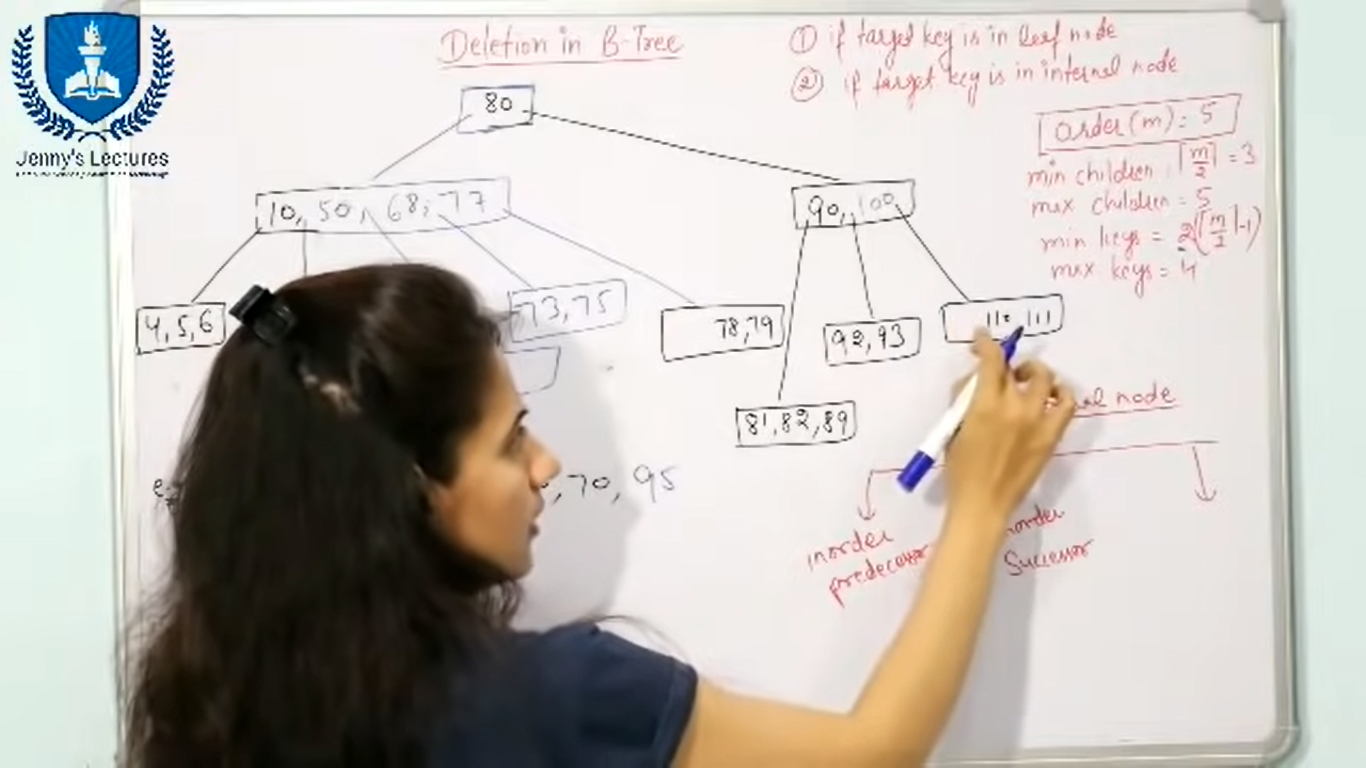 Jenny's Lectures
Deletion in B-Tree
① if target key is in leaf node
② if target key is in internal node
80
Order(m): 5
min children : ⌈m/2⌉ = 3
max children = 5
min keys = 2(⌈m/2⌉-1)
max keys = 4
10, 50, 68, 77
90, 100
4, 5, 6
73, 75
78, 79
92, 93
110, 111
81, 82, 89
node
, 70, 95
inorder
predecessor
Successor